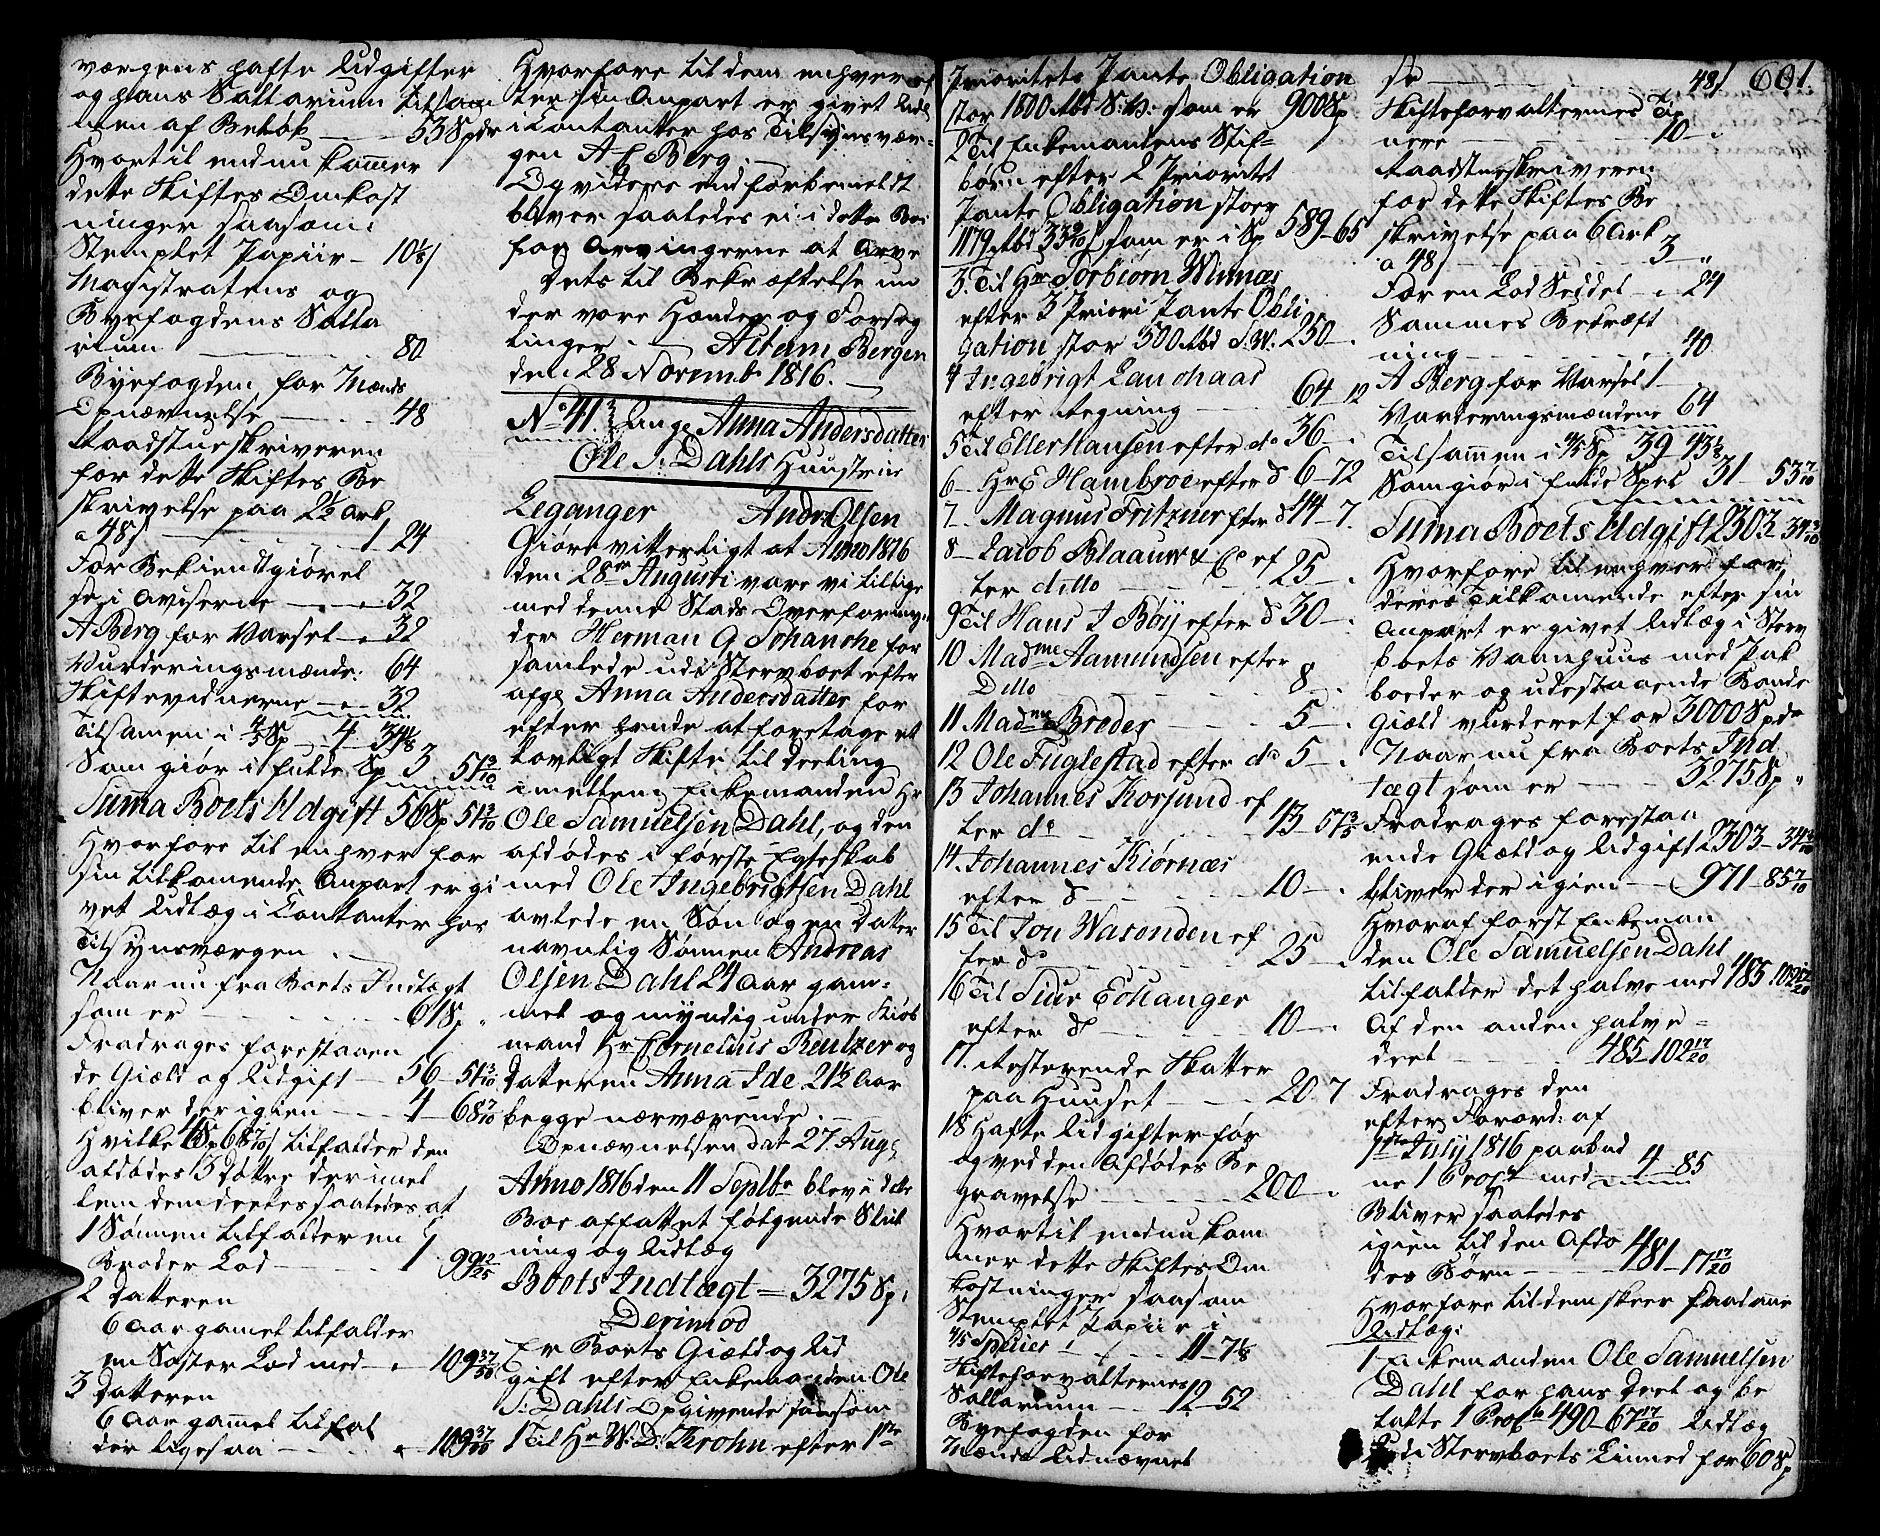 værgens hafte Udgifter
og hans Sallarium tilsam
men af Beløb — 53 Spdr
Hvortil endnu kommer
dette Skiftes Omkost
ninger saasom:
Stemplet Papiir — 10⅕ /
Magistratens og
Byefogdens Salla
rium — 80
Byefogden for Mænds
Opnævnelse — 48
Raadstueskriveren
for dette Skiftes Be
skrivelse paa 2½ Ark
a 48 s — 1 24
For Bekiendtgiørel
se i Aviserne — 32
A Berg for Varsel — 32
Vurderingsmænde: 64
Skiftevidnerne — 32
Tilsamen i 4/5 Sp — 4 — 34⅛
Som giør i fulde Sp 3 — 51 3/10
Suma Boets Udgift 56 Sp 51 3/10
Hvorfore til enhver for
sin tilkomende Anpart er gi
vet Udlæg i Contanter hos
Tilsynsværgen.
Naar nu fra Boets Indtægt
som er — 61 Sp „
Fradrages forestaaen
de Giæld og Udgift — 56 — 51 3/10
bliver der igien — 4 — 68 7/10
Hvilke 4 Sp 68 7/10 s tilfalder den
afdødes 3 døttre derimel
lem dem deeles saaledes at
1 Sønnen tilfalder en
Broder Lod — 1 99 12/25
2 Datteren
6 Aar gamel tilfalder
en Søster Lod med — „ 109 37/50
3 Datteren
6 Aar gamel tilfal
der ligesaa — „ 109 37/50
Hvorfore til dem enhver ef
ter sin Anpart er givet Udl
i Contanter hos Tilsynsvær-
gen A C Berg.
Og videre end forbemeldt
bliver saaledes ei i dette Boe
for Arvingerne at Arve
Dets til Bekræftelse un
der vore Hænder og Forseg
linger. — Actum Bergen
den 28 Novembr 1816.
No 41. Ang: Anna Andersdatter
Ole S: Dahls Huustrue
Leganger Andr Olsen
Giøre vitterligt at Anno 1816
den 28de Augusti vare vi tillige
med denne Stads Overformyn
der Herman G Johanche for
samlede udi Stervboet efter
afg: Anna Andersdatter for
efter hende at foretage et
lovligt Skifte til Deeling
imellem Enkemanden Hr
Ole Samuelsen Dahl, og den
afdødes i første Egteskab
med Ole Ingebrigtsen Dahl
avlede en Søn og en Datter
navnlig Sønnen Andreas
Olsen Dahl 24 Aar gam-
mel og myndig under Kiøb
mand Hr Cornelius Reutzer og
datteren Anna Ide 21½ Aar
begge nærværende. —
Opnævnelsen dat 27. Aug:
Anno 1816 den 11 Septbr blev i dette
Boe affattet følgende Slut
ning og Udlæg
Boets Indtægt = 3275 Sp:
Derimod
Er Boets Giæld og Ud
gift efter Enkemanden Ole
S: Dahls Opgivende saasom
1 Til Hr W. D. Krohn efter 1ste
Prioritets Pante Obligation
stor 1800 Rbd S. V: som er 900 Sp
2 Til Enkemandens Stif-
børn efter 2 Prioritet
Pante Obligation stoer
1179 Rbd 33 9/10 s som er i Sp 589 — 65
3. Til Hr Torbiørn Winnæs
efter 3 Priori Pante Obli
gation stor 500 Rbd S. W. 250 — .
4 Ingebrigt Landhaas
efter Regning — 64 — 12
5 Til Eller Hansen efter do 36 — .
6 — Hr E Hambroe efter d 6 — 72
7 — Magnus Fritzner efter d 44 — 7.
8 — Jacob Blaauw & Co ef
ter ditto — 25 — .
9 Til Hans J Bøy efter d 30 — .
10 Madme Aamundsen efter
Ditto — 8 .
11 Madme Breder — 5 — .
12 Ole Fuglestad efter do 5 — .
13 Johannes Korsund ef
ter do — 13 — 57 3/5
14. Johannes Kiørnæs
efter d — 10 — .
15 Til Jon Wasenden ef
ter do — 25 — .
16 Til Siur Echanger
efter d — 10 — .
17. Resterende Skatter
paa Huuset — 20 7
18 Hafte Udgifter før
og ved den Afdødes Be
gravelse — 200 — .
Hvortil endnu kom
mer dette Skiftes Om
kostninger saasom
Stemplet Papiir i
4/5 Specier — 11 — 7⅛
Skifteforvalternes
Sallarium — 12 — 52
Byefogden for
Mænds Udnævnel
se — 48 s 601.
Skifteforvalternes Tie
nere — 10 — .
Raadstueskriveren
for dette Skiftes Be
skrivelse paa 6 Ark
a 48 s — 3 „
For en Lod Seddel — „ 24
Sammes Bekræft
ning — 40
A Berg for Varsel 1 —
Vurderingsmændene 64
Tilsammen i 4/5 Sp 39 — 43⅛
Som giør i fulde Spec 31 — 53 7/10
Suma Boets Udgift 2303 34 3/10
Hvorfore til enhver for
deres Tilkomende efter sin
Anpart er givet Udlæg i Sterv
boets Vaanhuus med Pak
boeder og udestaaende Bonde
Giæld vurderet for 3000 Spdr
Naar nu fra Boets Ind
tægt som er — 3275 Sp „
Fradrages forestaa
ende Giæld og Udgift 2303 — 34 3/10
bliver der igien — 971 — 85 7/10
Hvoraf først Enkeman
den Ole Samuelsen Dahl
tilfalder det halve med 485. 102 17/20
Af den anden halve
deel — 485 — 102 17/20
Fradrages den
efter Forord: af
1ste July 1816 paabud
ne 1 Procto med 4 — 85
Bliver saaledes
igien til den Afdø
des Børn — 481 — 17 17/20
Hvorfore til dem skeer saadanne
Udlæg:
1 Enkemanden Ole Samuelsen
Dahl for hans Deel og be
talte 1 Procto 490 — 67 17/20 Udlæg
udi Stervboets Linned for 60 Sp